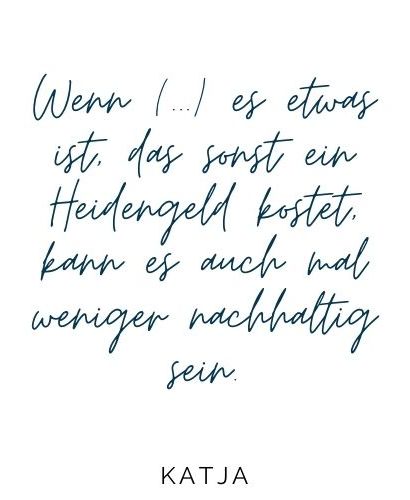 Wenn (...) es etwas
ist, das sonst ein
Heidengeld kostet,
kann es auch mal
weniger nachhaltig
sein.
KATJA